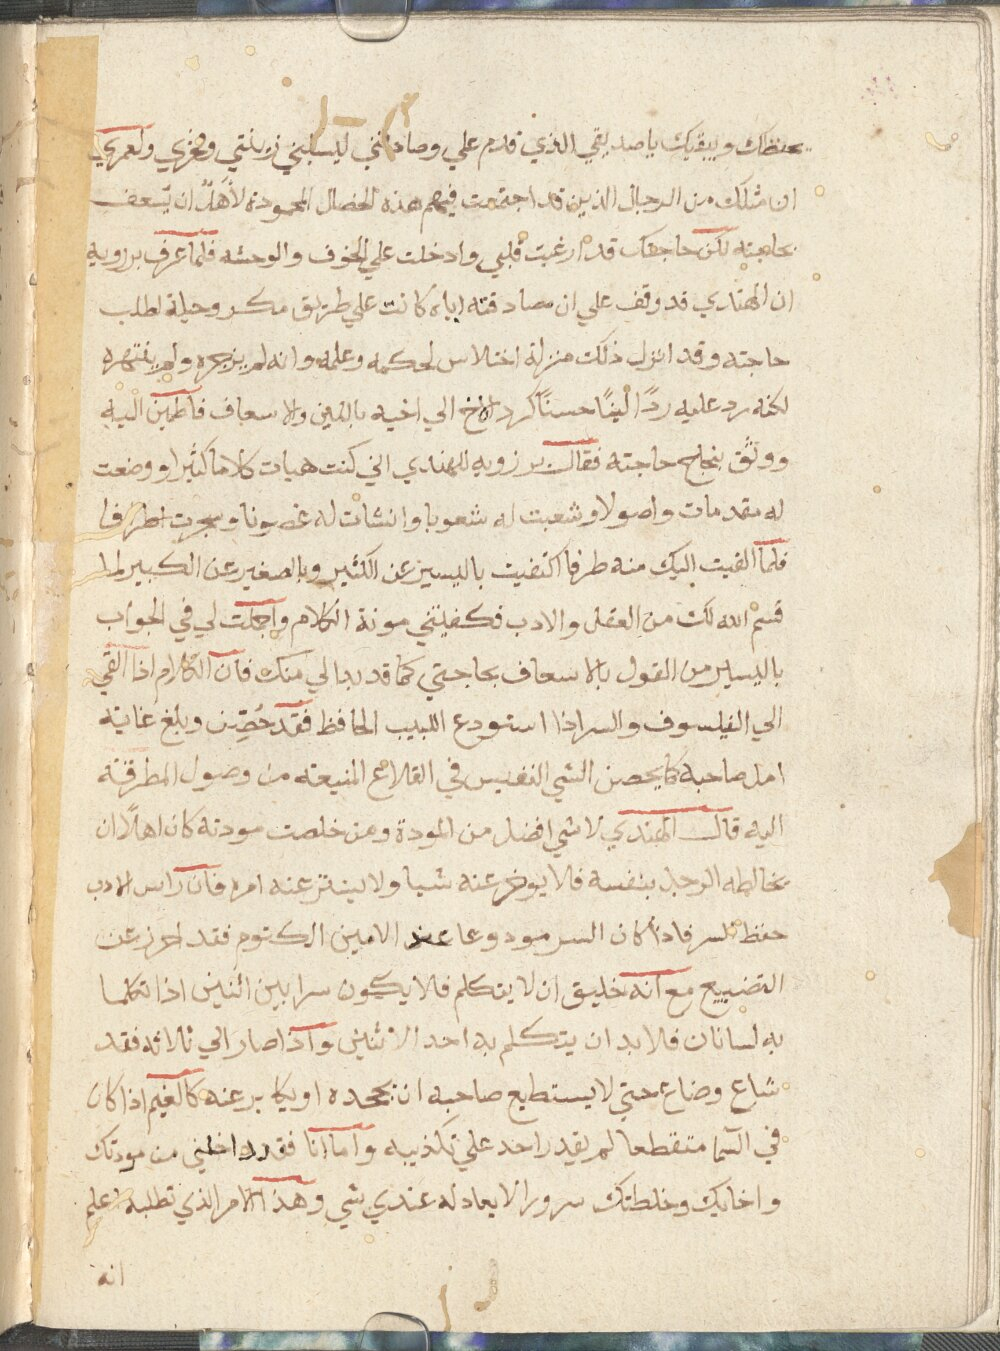 يحفظك ويبقيك يا صديقي الذي قدم علي وصادقني ليسلبني زينتي وفخري ولعمري
ان مثلك من الرجال الذين قد اجتمعت فيهم هذه الخصال المحمودة لأهلٌ ان يسعف
بحاجته لكن حاجتك قد ارغبت قلبي وادخلت علي الخوف والوحشه فلما عرف برزويه
ان الهندي قد وقف علي ان مصادقته اياه كانت علي طريق مكر وحيلة لطلب
حاجته وقد انزل ذلك منزلة اختلاس لحكمه وعلمه وانه لم يزجره ولم ينتهره
لكنه رد عليه ردًا لينًا حسنًا كرد الاخ الي اخيه باللين والاسعاف فاطمين اليه
ووثق بنجاح حاجته فقال برزويه للهندي اني كنت هميات كلاما كثيرا ووضعت
له مقدمات واصولا وشعبت له شعوبا وانشات له غصونا وسجرت اطرافا
فلما القيت اليك منه طرفا اكتفيت باليسير عن الكثير وبالصغير عن الكبير لما
قسم الله لك من العقل والادب فكفيتني مونة الكلام واجملت لي في الجواب
باليسير من القول بالاسعاف بحاجتي كما قد بدا لي منك فان الكلام اذا القي
الي الفيلسوف والسر اذا استودع اللبيب الحافظ فقد حُصِّن وبلغ غايته
امل صاحبه كما يحصن الشي النفيس في القلاع المنيعه من وصول المطرقته
اليه قال الهندي لا شي افضل من المودة ومن خلصت مودته كان اهلاً ان
يخالطه الرجل بنفسه فلا يوخر عنه شيا ولا يستر عنه امره فان راس الادب
حفظ السر فاذا كان السر مودوعا عند الامين الكتوم فقد احرز عن
التضييع مع انه خليق ان لا يتكلم فلا يكون سرا بين اثنين اذا تكلما
به لسانان فلا بد ان يتكلم به احد الاثنين واذا صار الي ثلاثه فقد
شاع وضاع حتي لا يستطيع صاحبه ان يجحده او يكابر عنه كالغيم اذا كان
في السما متقطعا لم يقدر احد علي تكذيبه واما انا فقد داخلني من مودتك
واخايك وخلطتك سرورا لا يعادله عندي شي وهذا الامر الذي تطلبه اعلم
انه